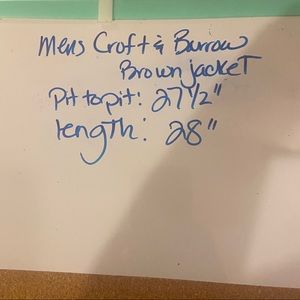 Mens Croft & Burrow
Brown jacket
Pit to pit: 27 1/2"
length: 28"